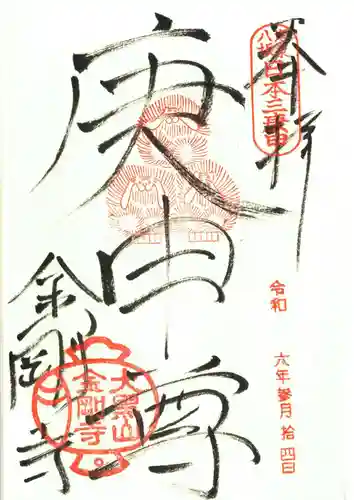 奉拝
八坂
日本三庚申
庚申尊
令和 六年參月拾四日
金剛寺
大黒山
金剛寺